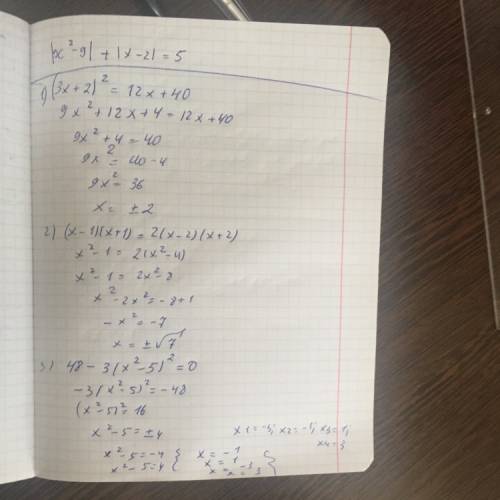 |x²-9| + |x-2| = 5
1) (3x+2)² = 12x+40
9x²+12x+4 = 12x+40
9x²+4 = 40
9x² = 40-4
9x² = 36
x = ±2
2) (x-1)(x+1) = 2(x-2)(x+2)
x²-1 = 2(x²-4)
x²-1 = 2x²-8
x²-2x² = -8+1
-x² = -7
x = ±√7
3) 48-3(x²-5)² = 0
-3(x²-5)² = -48
(x²-5)² = 16
x²-5 = ±4
x1=-3; x2=-1; x3=1;
x4=3
x²-5 = -4 { x = -1
x²-5 = 4 { x = 1
x = -3
x = 3